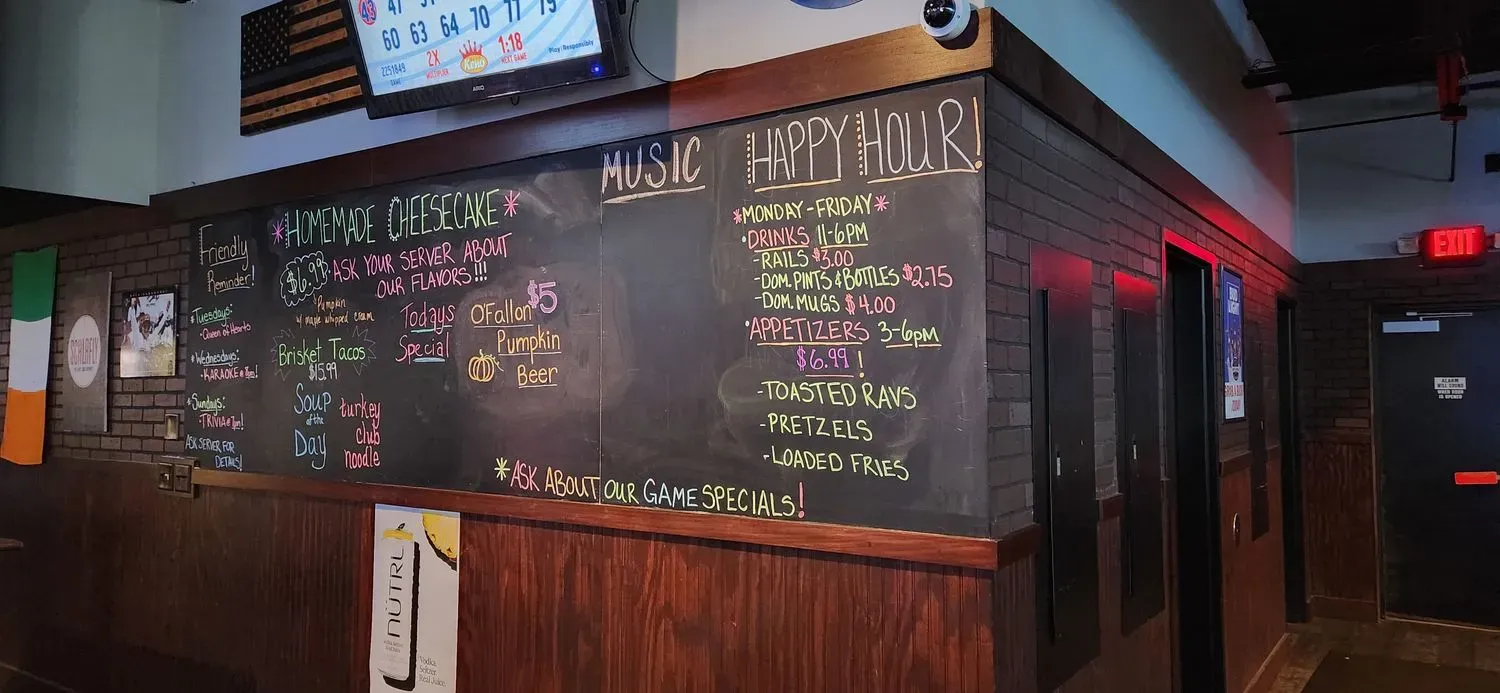 60 63 64 70 77 79
2251849
GAME
2X
MULTIPLIER
Keno
1:18
NEXT GAME
Play Responsibly
Friendly
Reminder!
*Tuesdays:
-Queen of Hearts
*Wednesdays:
-KARAOKE @ 8pm!
*Sundays:
-TRIVIA @ 7pm!
ASK SERVER FOR
DETAILS!
*HOMEMADE CHEESECAKE*
$6.99 - ASK YOUR SERVER ABOUT
OUR FLAVORS!!!
Pumpkin
w/ maple whipped cream
Brisket Tacos
$15.99
Soup
of the
Day
turkey
club
noodle
Todays
Special
O'Fallon $5
Pumpkin
Beer
MUSIC
*ASK ABOUT OUR GAME SPECIALS!
HAPPY HOUR!
*MONDAY-FRIDAY*
•DRINKS 11-6PM
-RAILS $3.00
-DOM. PINTS & BOTTLES $2.75
-DOM. MUGS $4.00
•APPETIZERS 3-6pm
$6.99!
-TOASTED RAVS
-PRETZELS
-LOADED FRIES
SCHLAFLY
NÜTRL
Vodka.
Seltzer.
Real Juice.
BUD
LIGHT
EXIT
ALARM
WILL SOUND
WHEN DOOR
IS OPENED